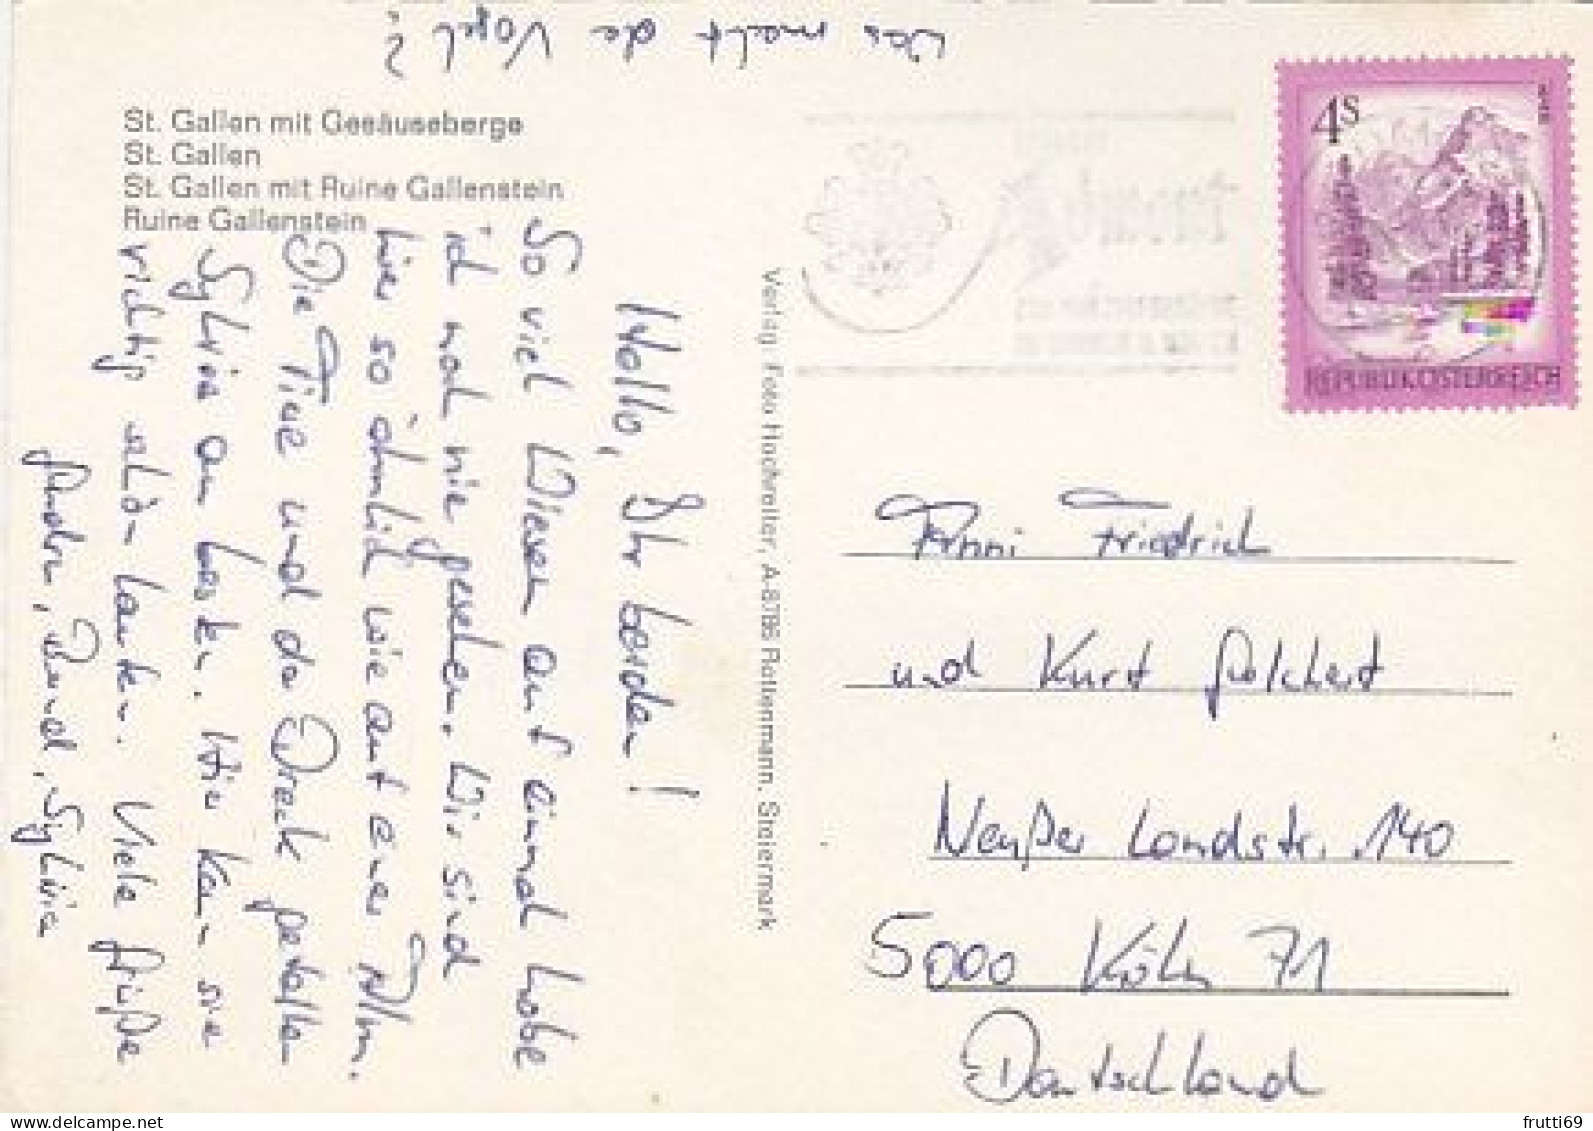 Was macht de Vogel?
St. Gallen mit Gesäuseberge
St. Gallen
St. Gallen mit Ruine Gallenstein
Ruine Gallenstein
Hallo, Ihr beiden!
So viel Wiesen auf einmal habe
ich noch nie gesehen. Wir sind
hier so ähnlich wie auf einer Alm.
Die Tiere und da Dreck gefallen
Sylvia am besten. Hier kann sie
richtig schön laufen. Viele Grüße
Andrea, Bernd, Sylvia
Verlag: Foto Hochreiter, A-8786 Rottenmann, Steiermark
4S
REPUBLIK ÖSTERREICH
Anni Friedrich
und Kurt
Neußer Landstr. 140
5000 Köln 71
Deutschland
www.delcampe.net
frutti69